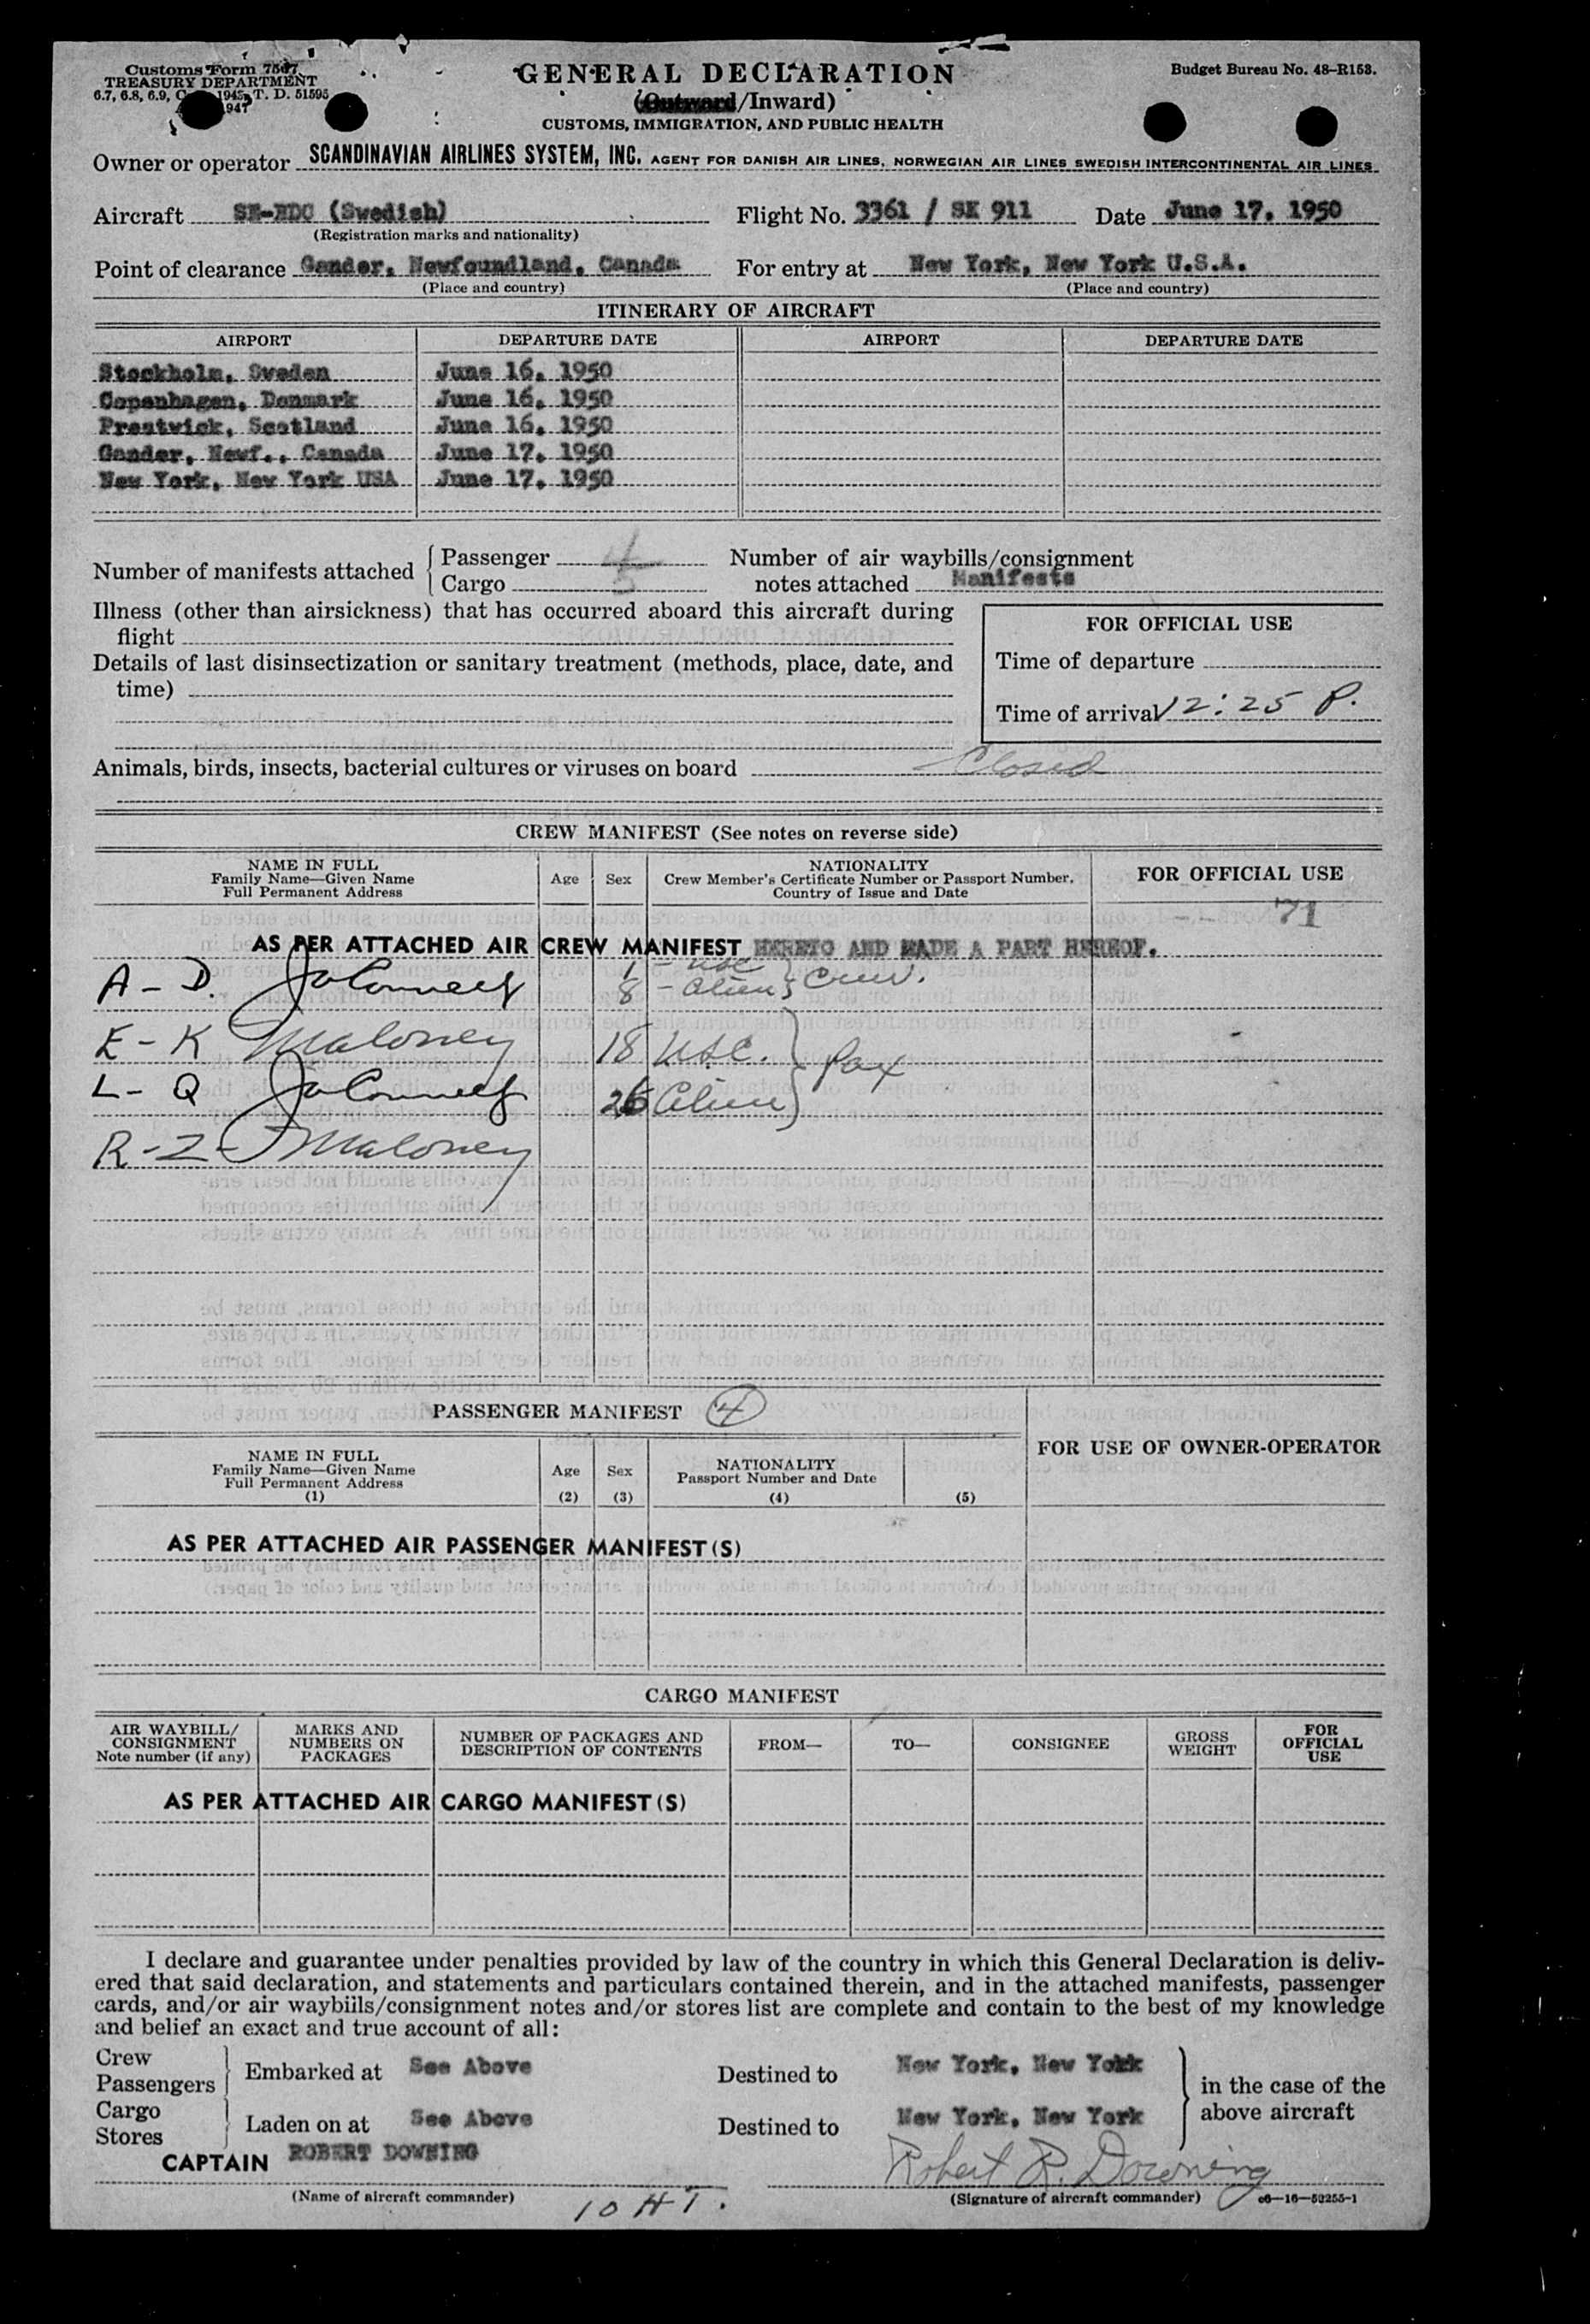 Customs Form 7507
TREASURY DEPARTMENT
6.7, 6.8, 6.9, 1945, T. D. 51595
1947
GENERAL DECLARATION
(Outward/Inward)
CUSTOMS, IMMIGRATION, AND PUBLIC HEALTH
Budget Bureau No. 48–R153.
Owner or operator SCANDINAVIAN AIRLINES SYSTEM, INC. AGENT FOR DANISH AIR LINES, NORWEGIAN AIR LINES SWEDISH INTERCONTINENTAL AIR LINES
Aircraft SE-BDC (Swedish) Flight No. 3361 / SK 911 Date June 17, 1950
(Registration marks and nationality)
Point of clearance Gander, Newfoundland, Canada For entry at New York, New York U.S.A.
(Place and country) (Place and country)
ITINERARY OF AIRCRAFT
AIRPORT DEPARTURE DATE AIRPORT DEPARTURE DATE
Stockholm, Sweden June 16, 1950
Copenhagen, Denmark June 16, 1950
Prestwick, Scotland June 16, 1950
Gander, Newf., Canada June 17, 1950
New York, New York USA June 17, 1950
Number of manifests attached { Passenger 4 Number of air waybills/consignment
Cargo 5 notes attached Manifests
Illness (other than airsickness) that has occurred aboard this aircraft during
flight
Details of last disinsectization or sanitary treatment (methods, place, date, and
time)
FOR OFFICIAL USE
Time of departure
Time of arrival 12:25 P.
Animals, birds, insects, bacterial cultures or viruses on board Closed
CREW MANIFEST (See notes on reverse side)
NAME IN FULL
Family Name—Given Name
Full Permanent Address
Age Sex
NATIONALITY
Crew Member's Certificate Number or Passport Number,
Country of Issue and Date
FOR OFFICIAL USE
71
AS PER ATTACHED AIR CREW MANIFEST HERETO AND MADE A PART HEREOF.
1 - USC
A - D. 8 - Alien } Crew.
E - K Maloney 18 USC. } Pax
L - Q 26 Alien
R - Z - Maloney
PASSENGER MANIFEST 4
NAME IN FULL
Family Name—Given Name
Full Permanent Address
(1)
Age (2)
Sex (3)
NATIONALITY
Passport Number and Date
(4) (5)
FOR USE OF OWNER-OPERATOR
AS PER ATTACHED AIR PASSENGER MANIFEST(S)
CARGO MANIFEST
AIR WAYBILL/ CONSIGNMENT Note number (if any)
MARKS AND NUMBERS ON PACKAGES
NUMBER OF PACKAGES AND DESCRIPTION OF CONTENTS
FROM— TO— CONSIGNEE
GROSS WEIGHT
FOR OFFICIAL USE
AS PER ATTACHED AIR CARGO MANIFEST(S)
I declare and guarantee under penalties provided by law of the country in which this General Declaration is deliv-
ered that said declaration, and statements and particulars contained therein, and in the attached manifests, passenger
cards, and/or air waybiils/consignment notes and/or stores list are complete and contain to the best of my knowledge
and belief an exact and true account of all:
Crew
Passengers } Embarked at See Above Destined to New York, New Yokk
Cargo
Stores } Laden on at See Above Destined to New York, New York
} in the case of the
above aircraft
CAPTAIN ROBERT DOWNING Robert R. Downing
(Name of aircraft commander) (Signature of aircraft commander) c6—16—52255-1
10 HT.